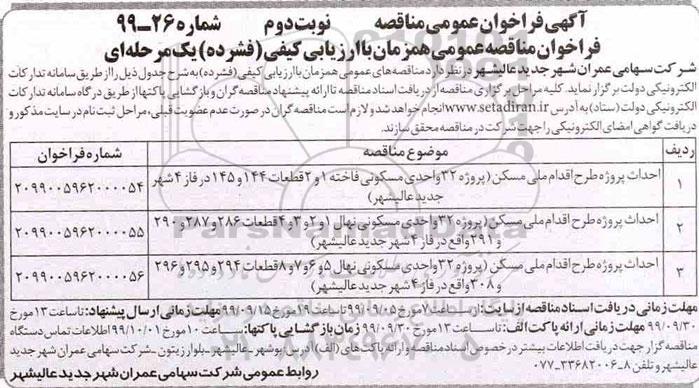 آگهی فراخوان عمومی مناقصه نوبت دوم شماره ۲۶-۹۹
فراخوان مناقصه عمومی همزمان با ارزیابی کیفی (فشرده) یک مرحله‌ای
شرکت سهامی عمران شهر جدید عالیشهر در نظر دارد مناقصه‌های عمومی همزمان با ارزیابی کیفی (فشرده) به شرح جدول ذیل را از طریق سامانه تدارکات
الکترونیکی دولت برگزار نماید. کلیه مراحل برگزاری مناقصه از دریافت اسناد مناقصه تا ارائه پیشنهاد مناقصه گران و بازگشایی پاکتها از طریق درگاه سامانه تدارکات
الکترونیکی دولت (ستاد) به آدرس www.setadiran.ir انجام خواهد شد و لازم است مناقصه گران در صورت عدم عضویت قبلی، مراحل ثبت نام در سایت مذکور و
دریافت گواهی امضای الکترونیکی را جهت شرکت در مناقصه محقق سازند.
ردیف موضوع مناقصه شماره فراخوان
۱ احداث پروژه طرح اقدام ملی مسکن (پروژه ۳۲ واحدی مسکونی فاخته ۱ و ۲ قطعات ۱۴۴ و ۱۴۵ در فاز ۴ شهر جدید عالیشهر) ۲۰۹۹۰۰۵۹۶۲۰۰۰۰۵۴
۲ احداث پروژه طرح اقدام ملی مسکن (پروژه ۳۲ واحدی مسکونی نهال ۱ و ۲ و ۳ و ۴ قطعات ۲۸۶ و ۲۸۷ و ۲۹۰ و ۲۹۱ واقع در فاز ۴ شهر جدید عالیشهر) ۲۰۹۹۰۰۵۹۶۲۰۰۰۰۵۵
۳ احداث پروژه طرح اقدام ملی مسکن (پروژه ۳۲ واحدی مسکونی نهال ۵ و ۶ و ۷ و ۸ قطعات ۲۹۴ و ۲۹۵ و ۲۹۶ و ۳۰۸ واقع در فاز ۴ شهر جدید عالیشهر) ۲۰۹۹۰۰۵۹۶۲۰۰۰۰۵۶
مهلت زمانی دریافت اسناد مناقصه از سایت: از ساعت ۷ مورخ ۹۹/۰۹/۰۵ تا ساعت ۱۹ مورخ ۹۹/۰۹/۱۵ مهلت زمانی ارسال پیشنهاد: تا ساعت ۱۳ مورخ
۹۹/۰۹/۳۰ مهلت زمانی ارائه پاکت الف: تا ساعت ۱۳ مورخ ۹۹/۰۹/۳۰ زمان بازگشایی پاکتها: ساعت ۱۰ مورخ ۹۹/۱۰/۰۱ اطلاعات تماس دستگاه
مناقصه گزار جهت دریافت اطلاعات بیشتر در خصوص اسناد مناقصه و ارائه پاکت‌های (الف) آدرس: بوشهر - عالیشهر - بلوار زیتون - شرکت سهامی عمران شهر جدید
عالیشهر و تلفن ۸-۳۳۶۸۲۰۰۶-۰۷۷
روابط عمومی شرکت سهامی عمران شهر جدید عالیشهر